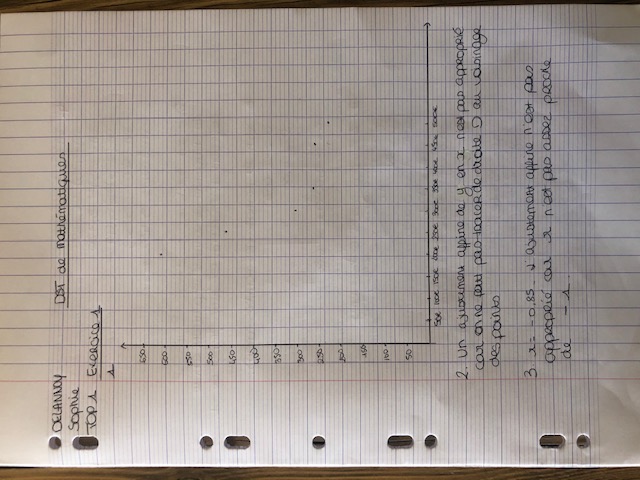 DELANNOY
DST de mathématiques
Sophie
TOP 1 Exercice 1
1
650
600
550
500
450
400
350
300
250
200
150
100
50
50€ 100€ 150€ 200€ 250€ 300€ 350€ 400€ 450€ 500€
2. Un ajustement affine de y en x n'est pas approprié
car on ne peut pas tracer de droite D au voisinage
des points
3. r = -0,85 L'ajustement affine n'est pas
approprié car r n'est pas assez proche
de -1